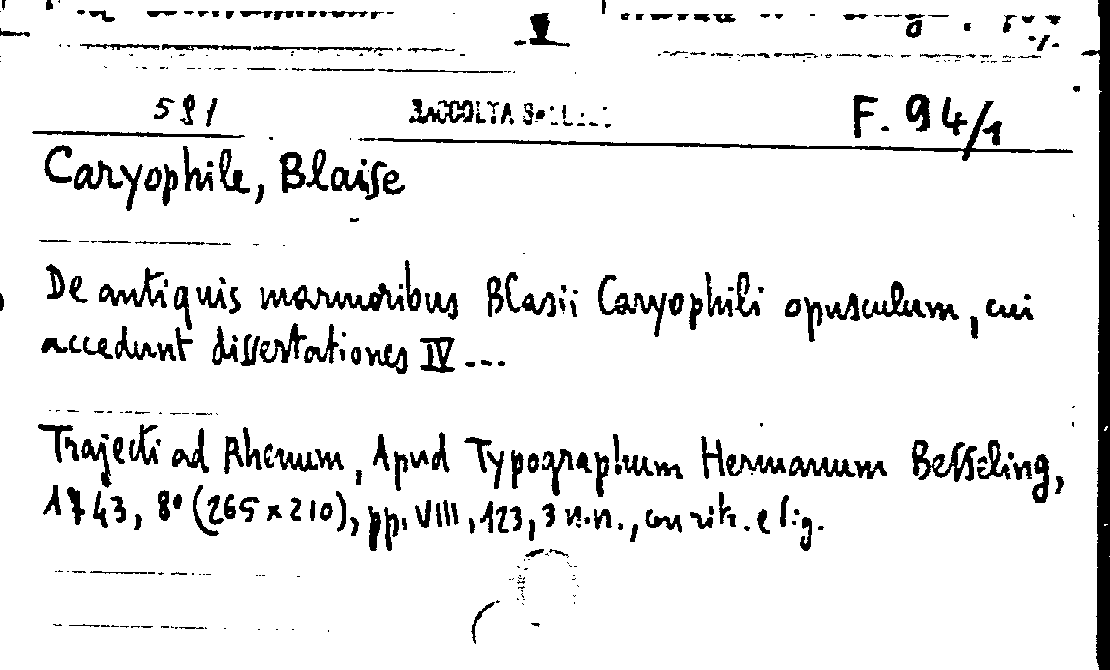 591
RACCOLTA
F. 94/1
Caryophile, Blaise
De antiquis marmoribus Blasii Caryophili opusculum, cui
accedunt dissertationes IV...
Trajecti ad Rhenum, Apud Typographum Hermanum Besseling,
1743, 8° (265 x 210), pp. VIII, 123, 3 n.n., con ritr. e fig.